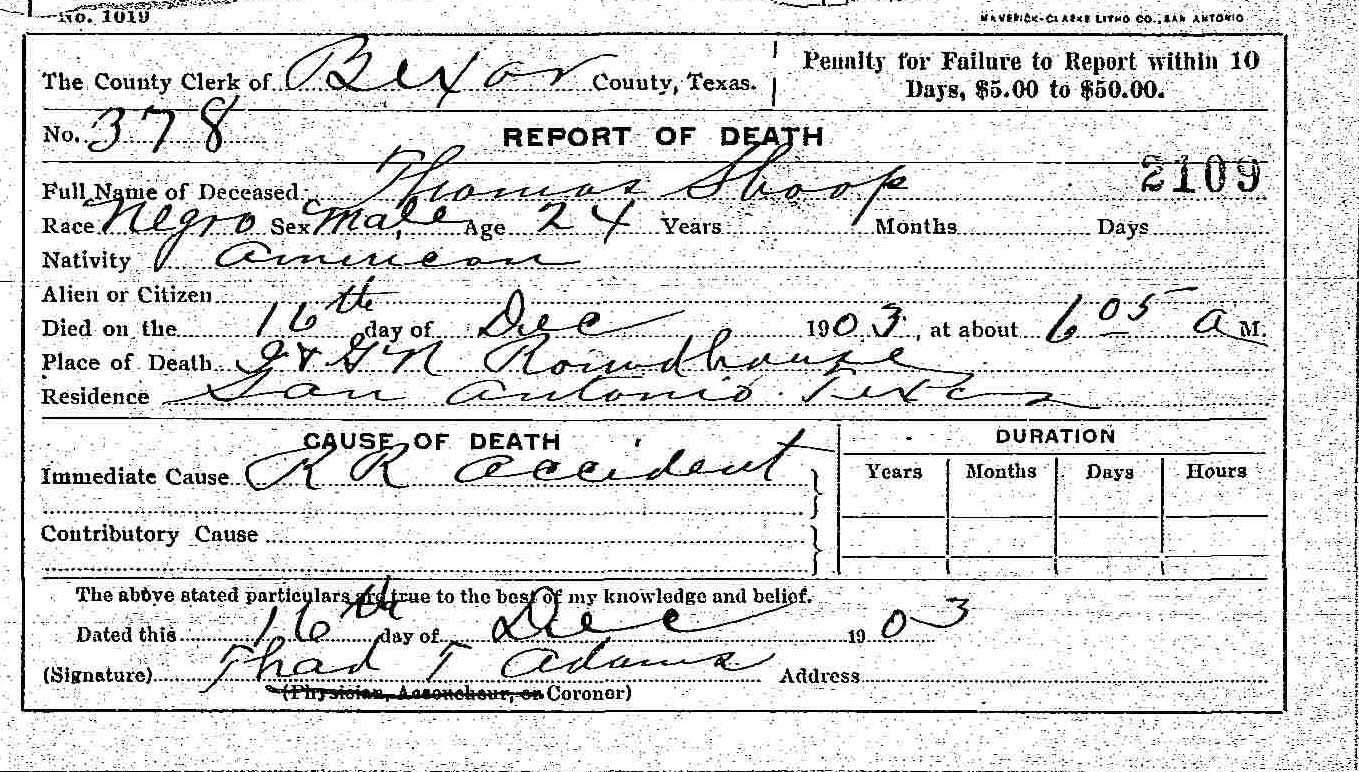 No. 1019
MAVERICK-CLARKE LITHO CO., SAN ANTONIO
The County Clerk of Bexar County, Texas.
Penalty for Failure to Report within 10
Days, $5.00 to $50.00.
No. 378 REPORT OF DEATH
2109
Full Name of Deceased Thomas Shoop
Race Negro Sex Male Age 24 Years Months Days
Nativity American
Alien or Citizen
Died on the 16th day of Dec 1903, at about 6 05 a M.
Place of Death I & G N Roundhouse
Residence San Antonio Texas
CAUSE OF DEATH DURATION
Immediate Cause R R accident Years Months Days Hours
Contributory Cause
The above stated particulars are true to the best of my knowledge and belief.
Dated this 16th day of Dec 1903
(Signature) Thad T Adams Address
(Physician, Accoucheur, or Coroner)